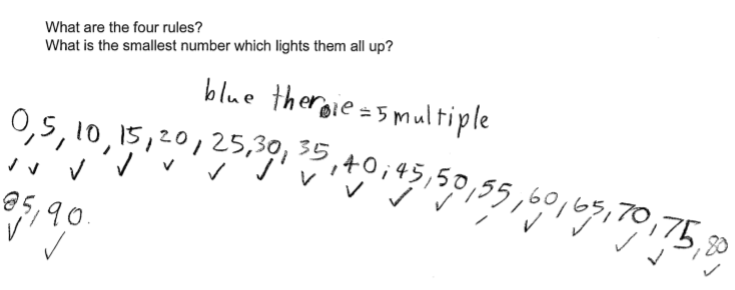 What are the four rules?
What is the smallest number which lights them all up?
blue theroie = 5 multiple
0, 5, 10, 15, 20, 25, 30, 35, 40, 45, 50, 55, 60, 65, 70, 75, 80
85, 90.